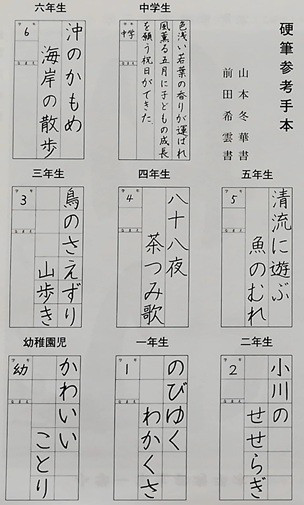 硬筆参考手本
山本冬華書
前田希雲書
中学生
色浅い若葉の香りが運ばれ
風薫る五月に子どもの成長
を願う祝日ができた
中学
六年生
沖のかもめ
海岸の散歩
6
五年生
清流に遊ぶ
魚のむれ
5
四年生
八十八夜
茶つみ歌
4
三年生
鳥のさえずり
山歩き
3
二年生
小川の
せせらぎ
2
一年生
のびゆく
わかくさ
1
幼稚園児
かわいい
ことり
幼